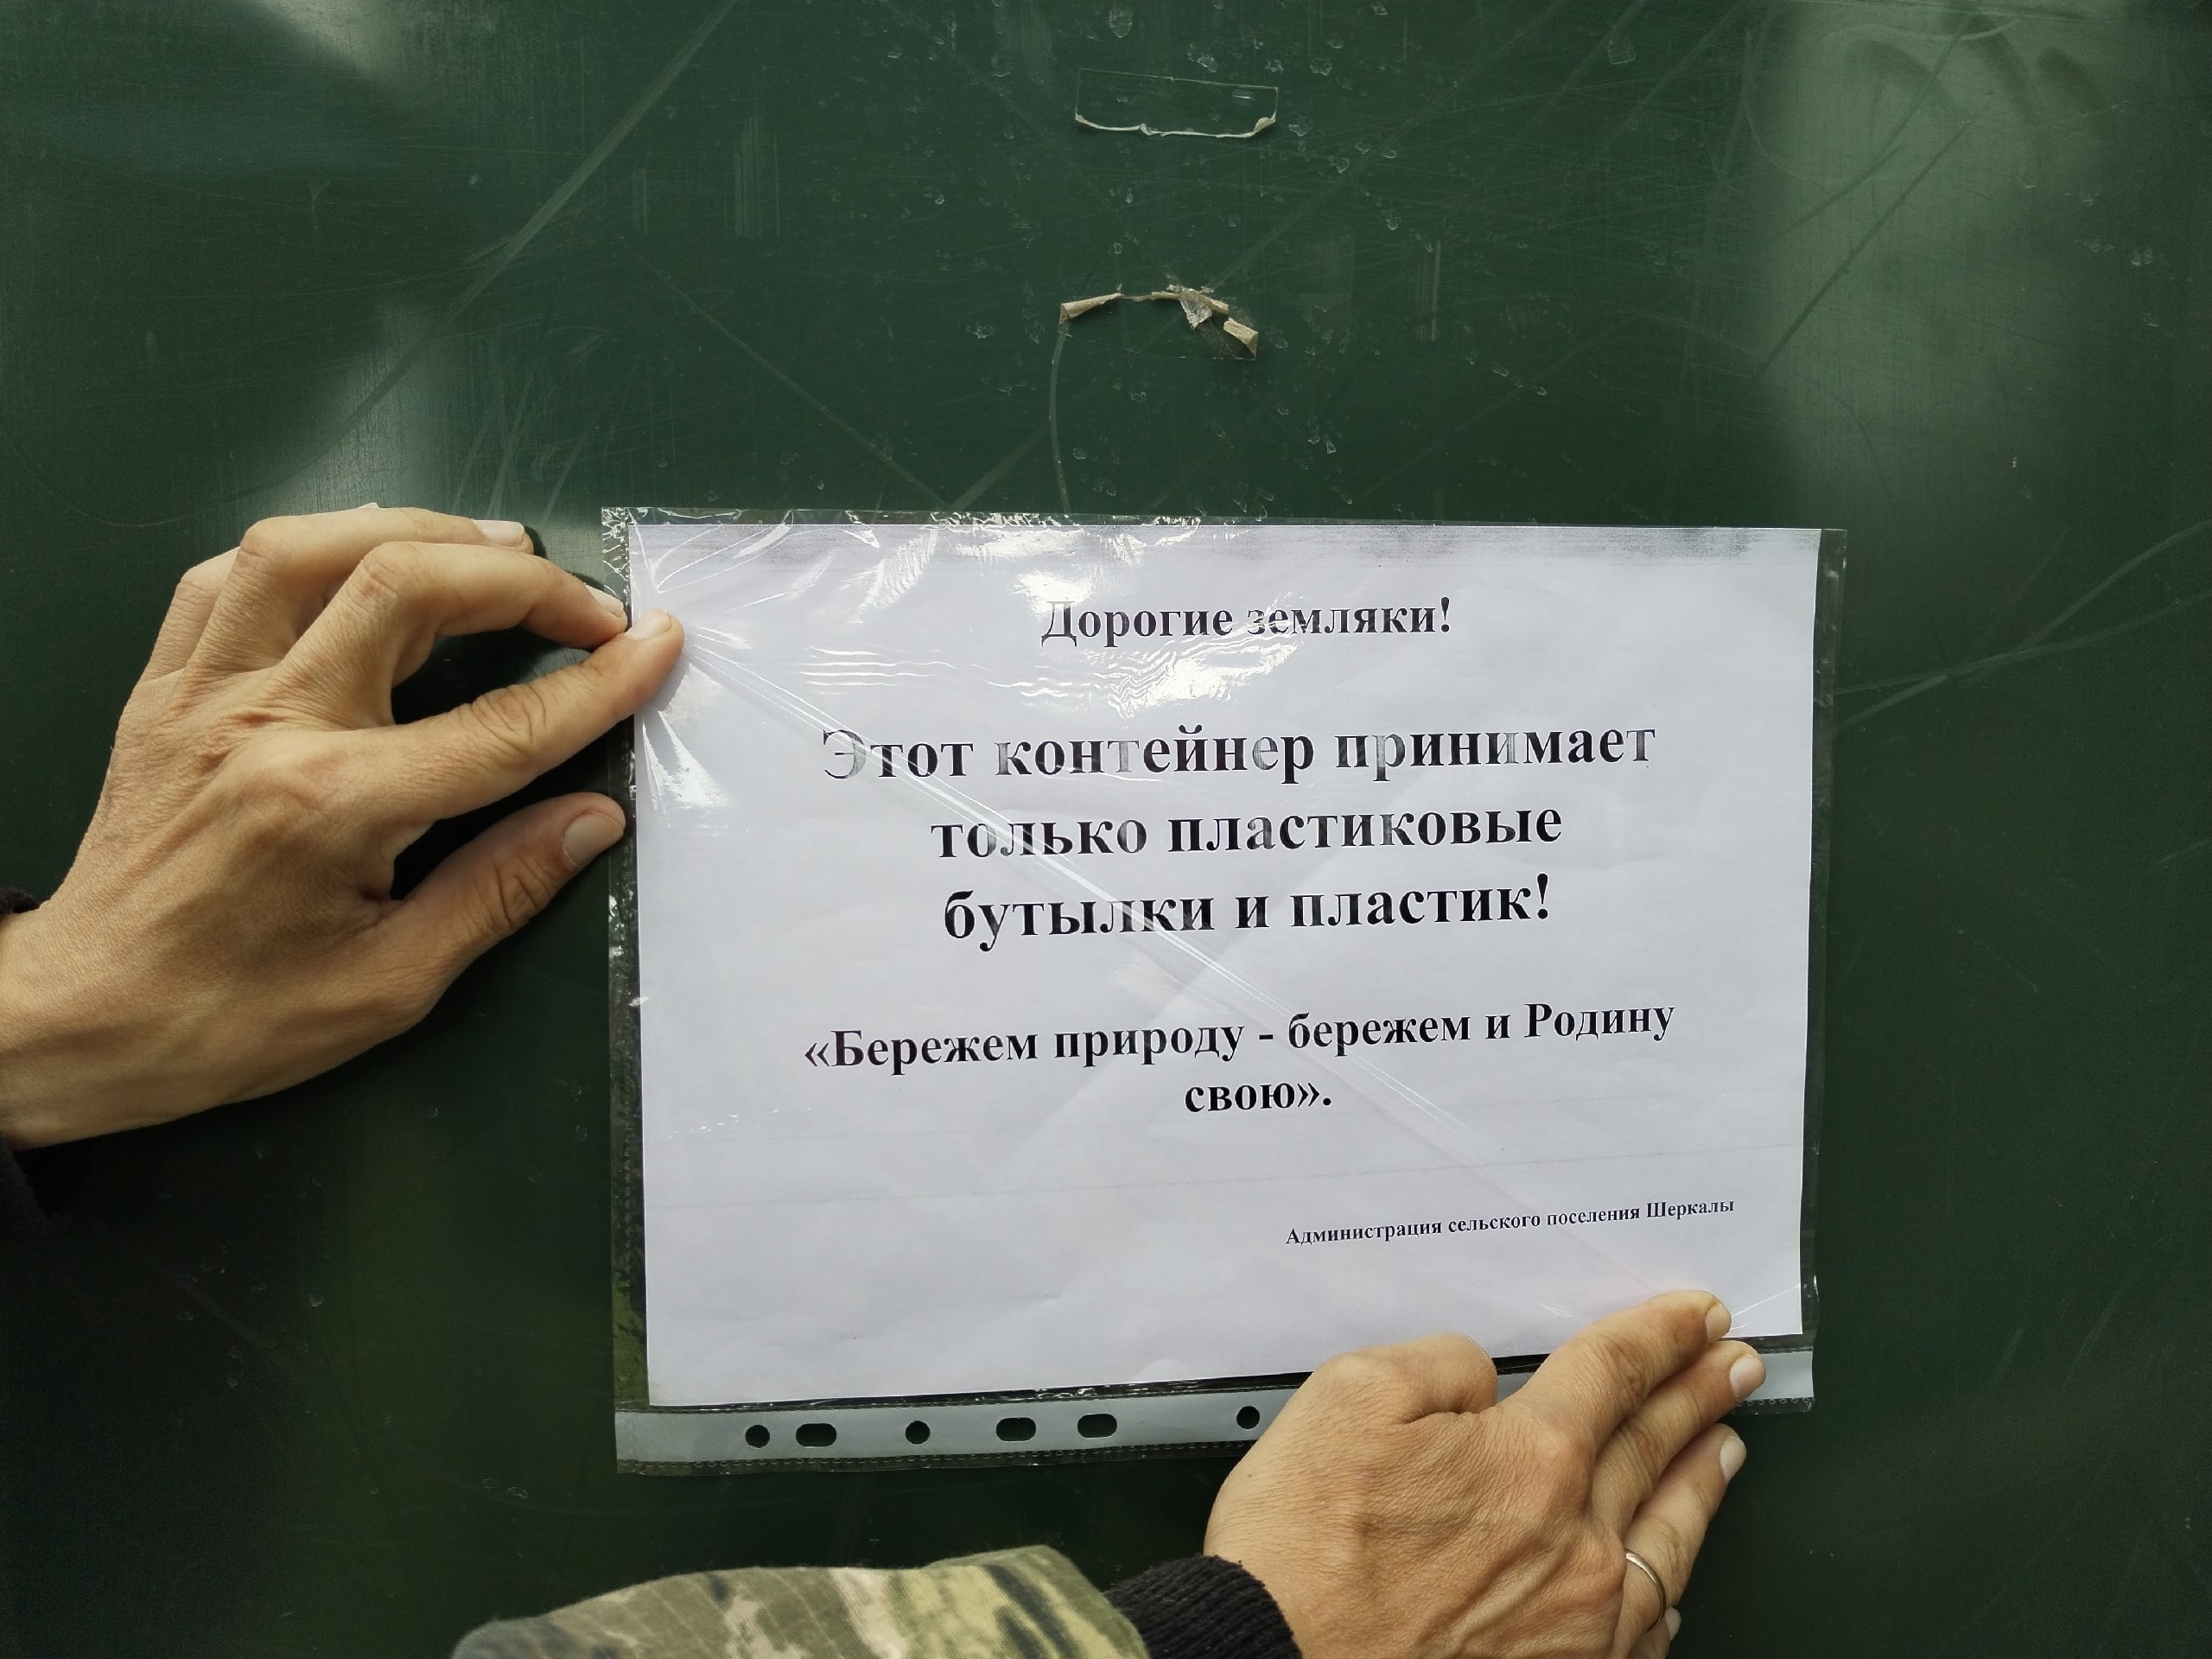 Дорогие земляки!
Этот контейнер принимает
только пластиковые
бутылки и пластик!
«Бережем природу - бережем и Родину
свою».
Администрация сельского поселения Шеркалы